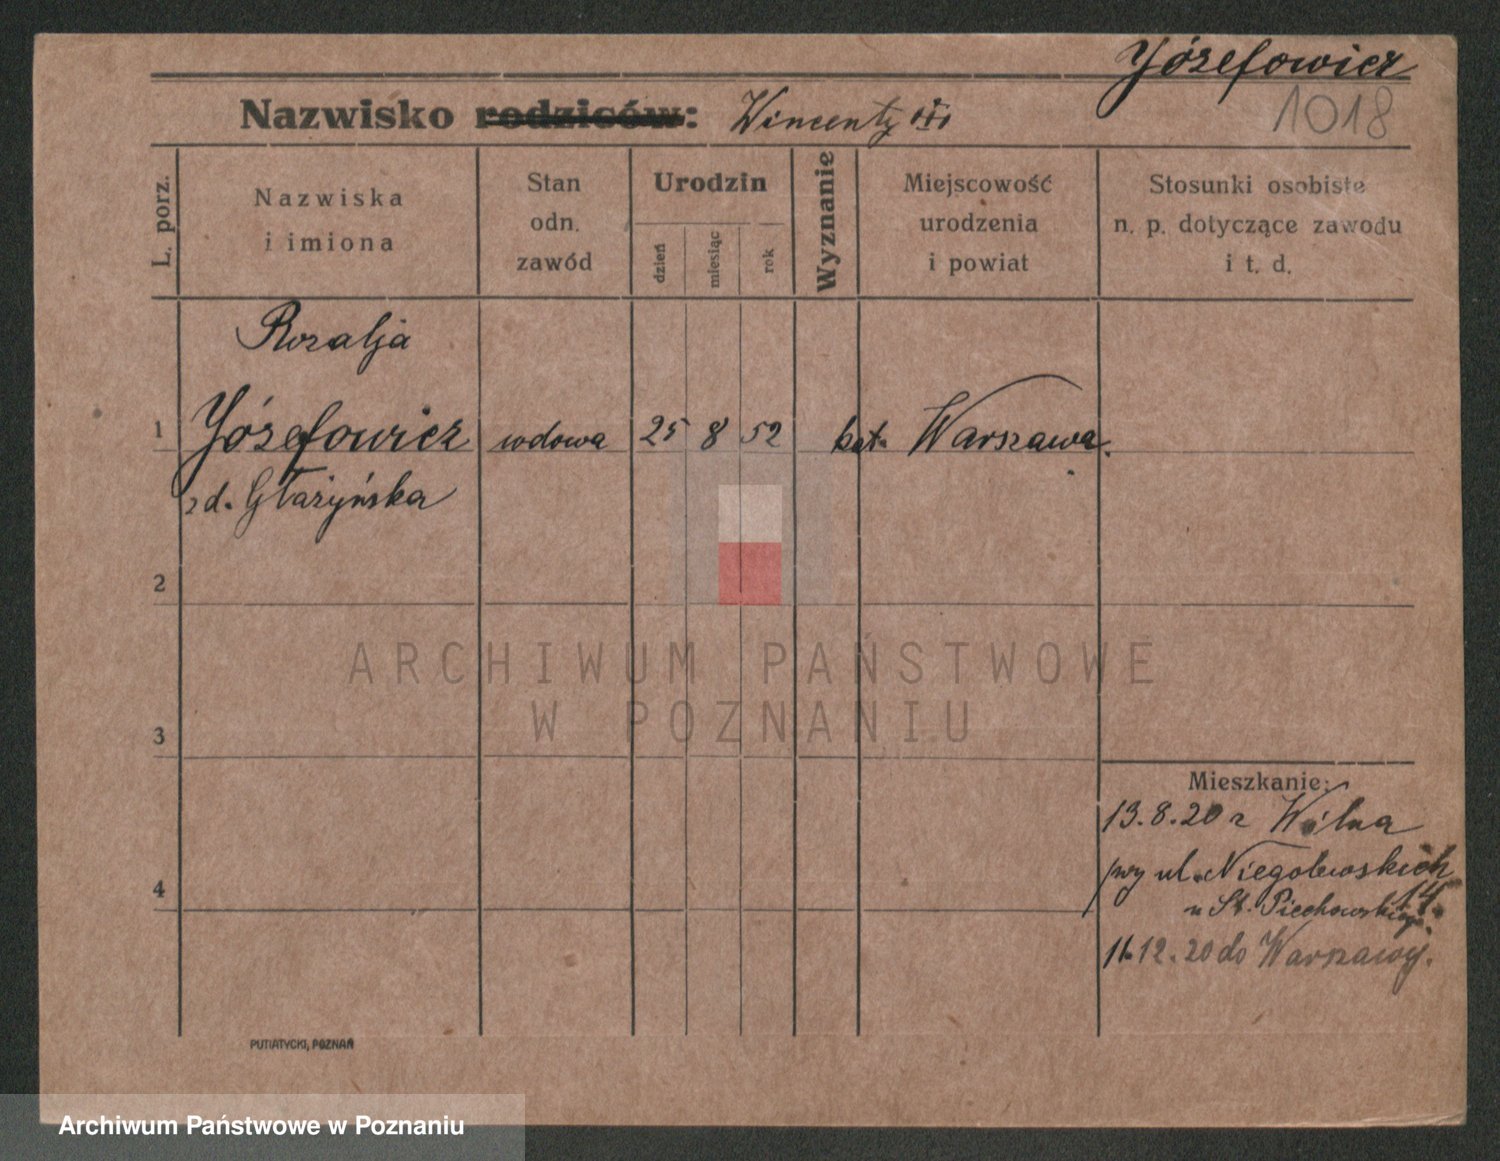 Józefowicz
1018
Nazwisko rodziców: Wincenty
L. porz.
Nazwiska
i imiona
Stan
odn.
zawód
Urodzin
dzień
miesiąc
rok
Wyznanie
Miejscowość
urodzenia
i powiat
Stosunki osobiste
n. p. dotyczące zawodu
i t. d.
Rozalja
1 Józefowicz wdowa 25 8 52 kat. Warszawa.
zd. Głażyńska
2
3
4
ARCHIWUM PAŃSTWOWE
W POZNANIU
Mieszkanie:
13.8.20 z Wilna
przy ul. Niegolewskich
14.
u St. Piechowskiego.
11.12.20 do Warszawy.
PUTIATYCKI, POZNAŃ
Archiwum Państwowe w Poznaniu